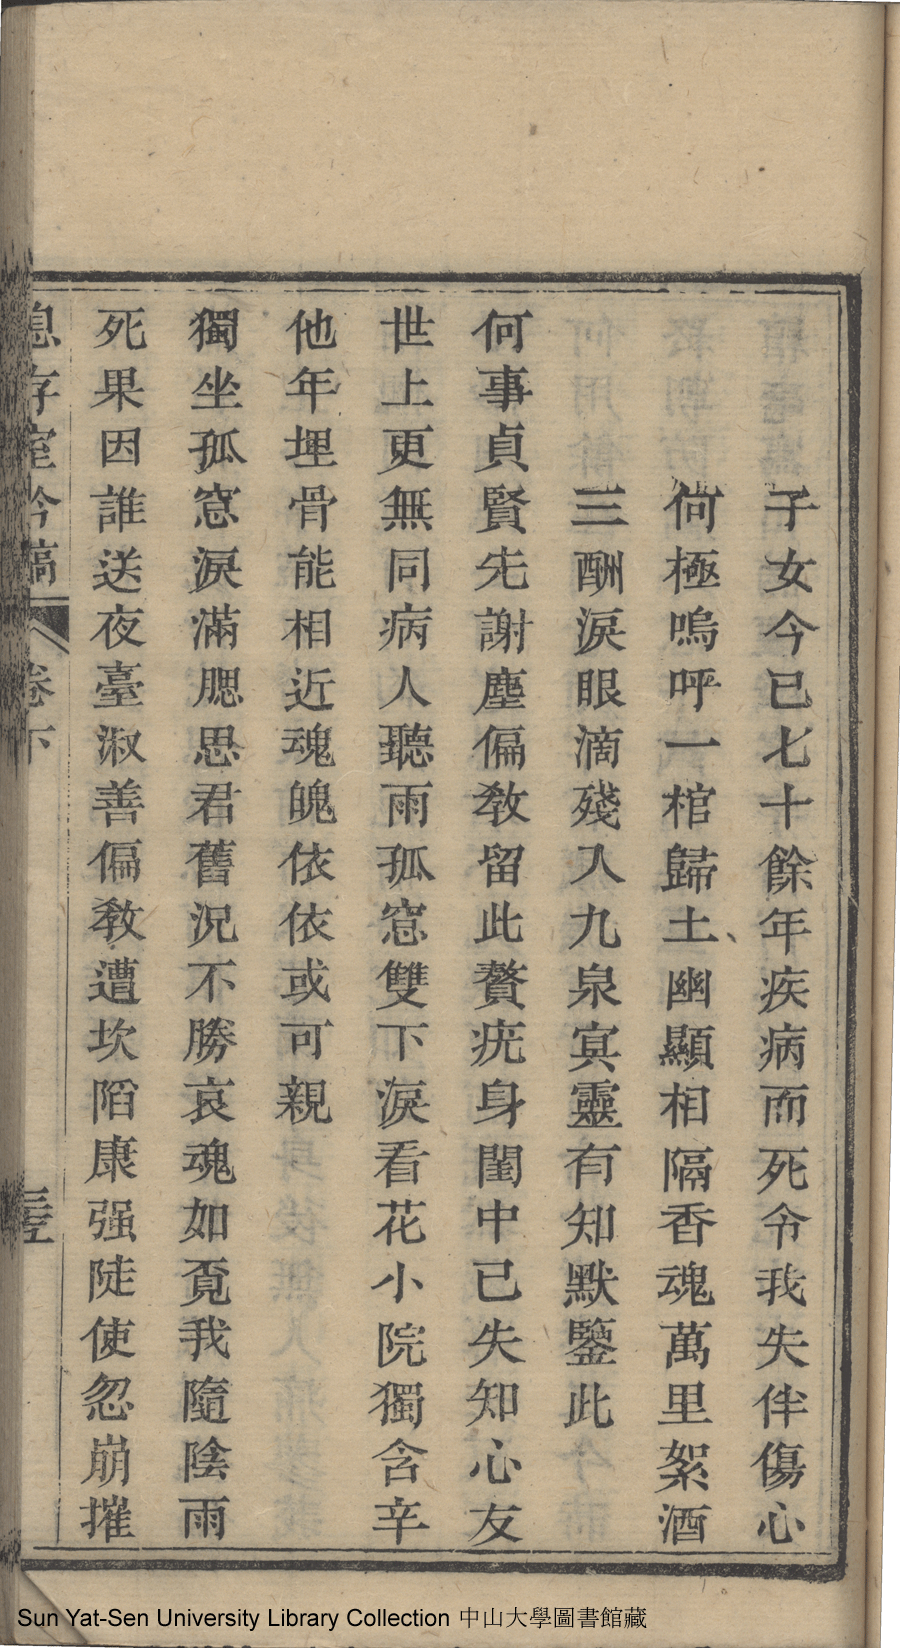 子女今已七十餘年疾病而死令我失伴傷心
何極嗚呼一棺歸土幽顯相隔香魂萬里絮酒
三酬淚眼滴殘人九泉寘靈有知默鑒此
何事貞賢先謝塵偏教留此贅疣身閨中已失知心友
世上更無同病人聽雨孤窓雙下淚看花小院獨含辛
他年埋骨能相近魂魄依依或可親
獨坐孤窓淚滿腮思君舊況不勝哀魂如覔我隨陰雨
死果因誰送夜臺淑善偏教遭坎陷康强陡使忽崩摧
息存室吟稿
卷下
三十五
Sun Yat-Sen University Library Collection 中山大學圖書館藏